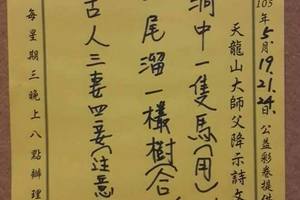 105年5月19.21.24日.公益彩卷提供
天龍山大師父降示詩文
洞中一隻馬(甩)
尾溜一欉樹(合
古人三妻四妾(注意
每星期三晚上八點辦理